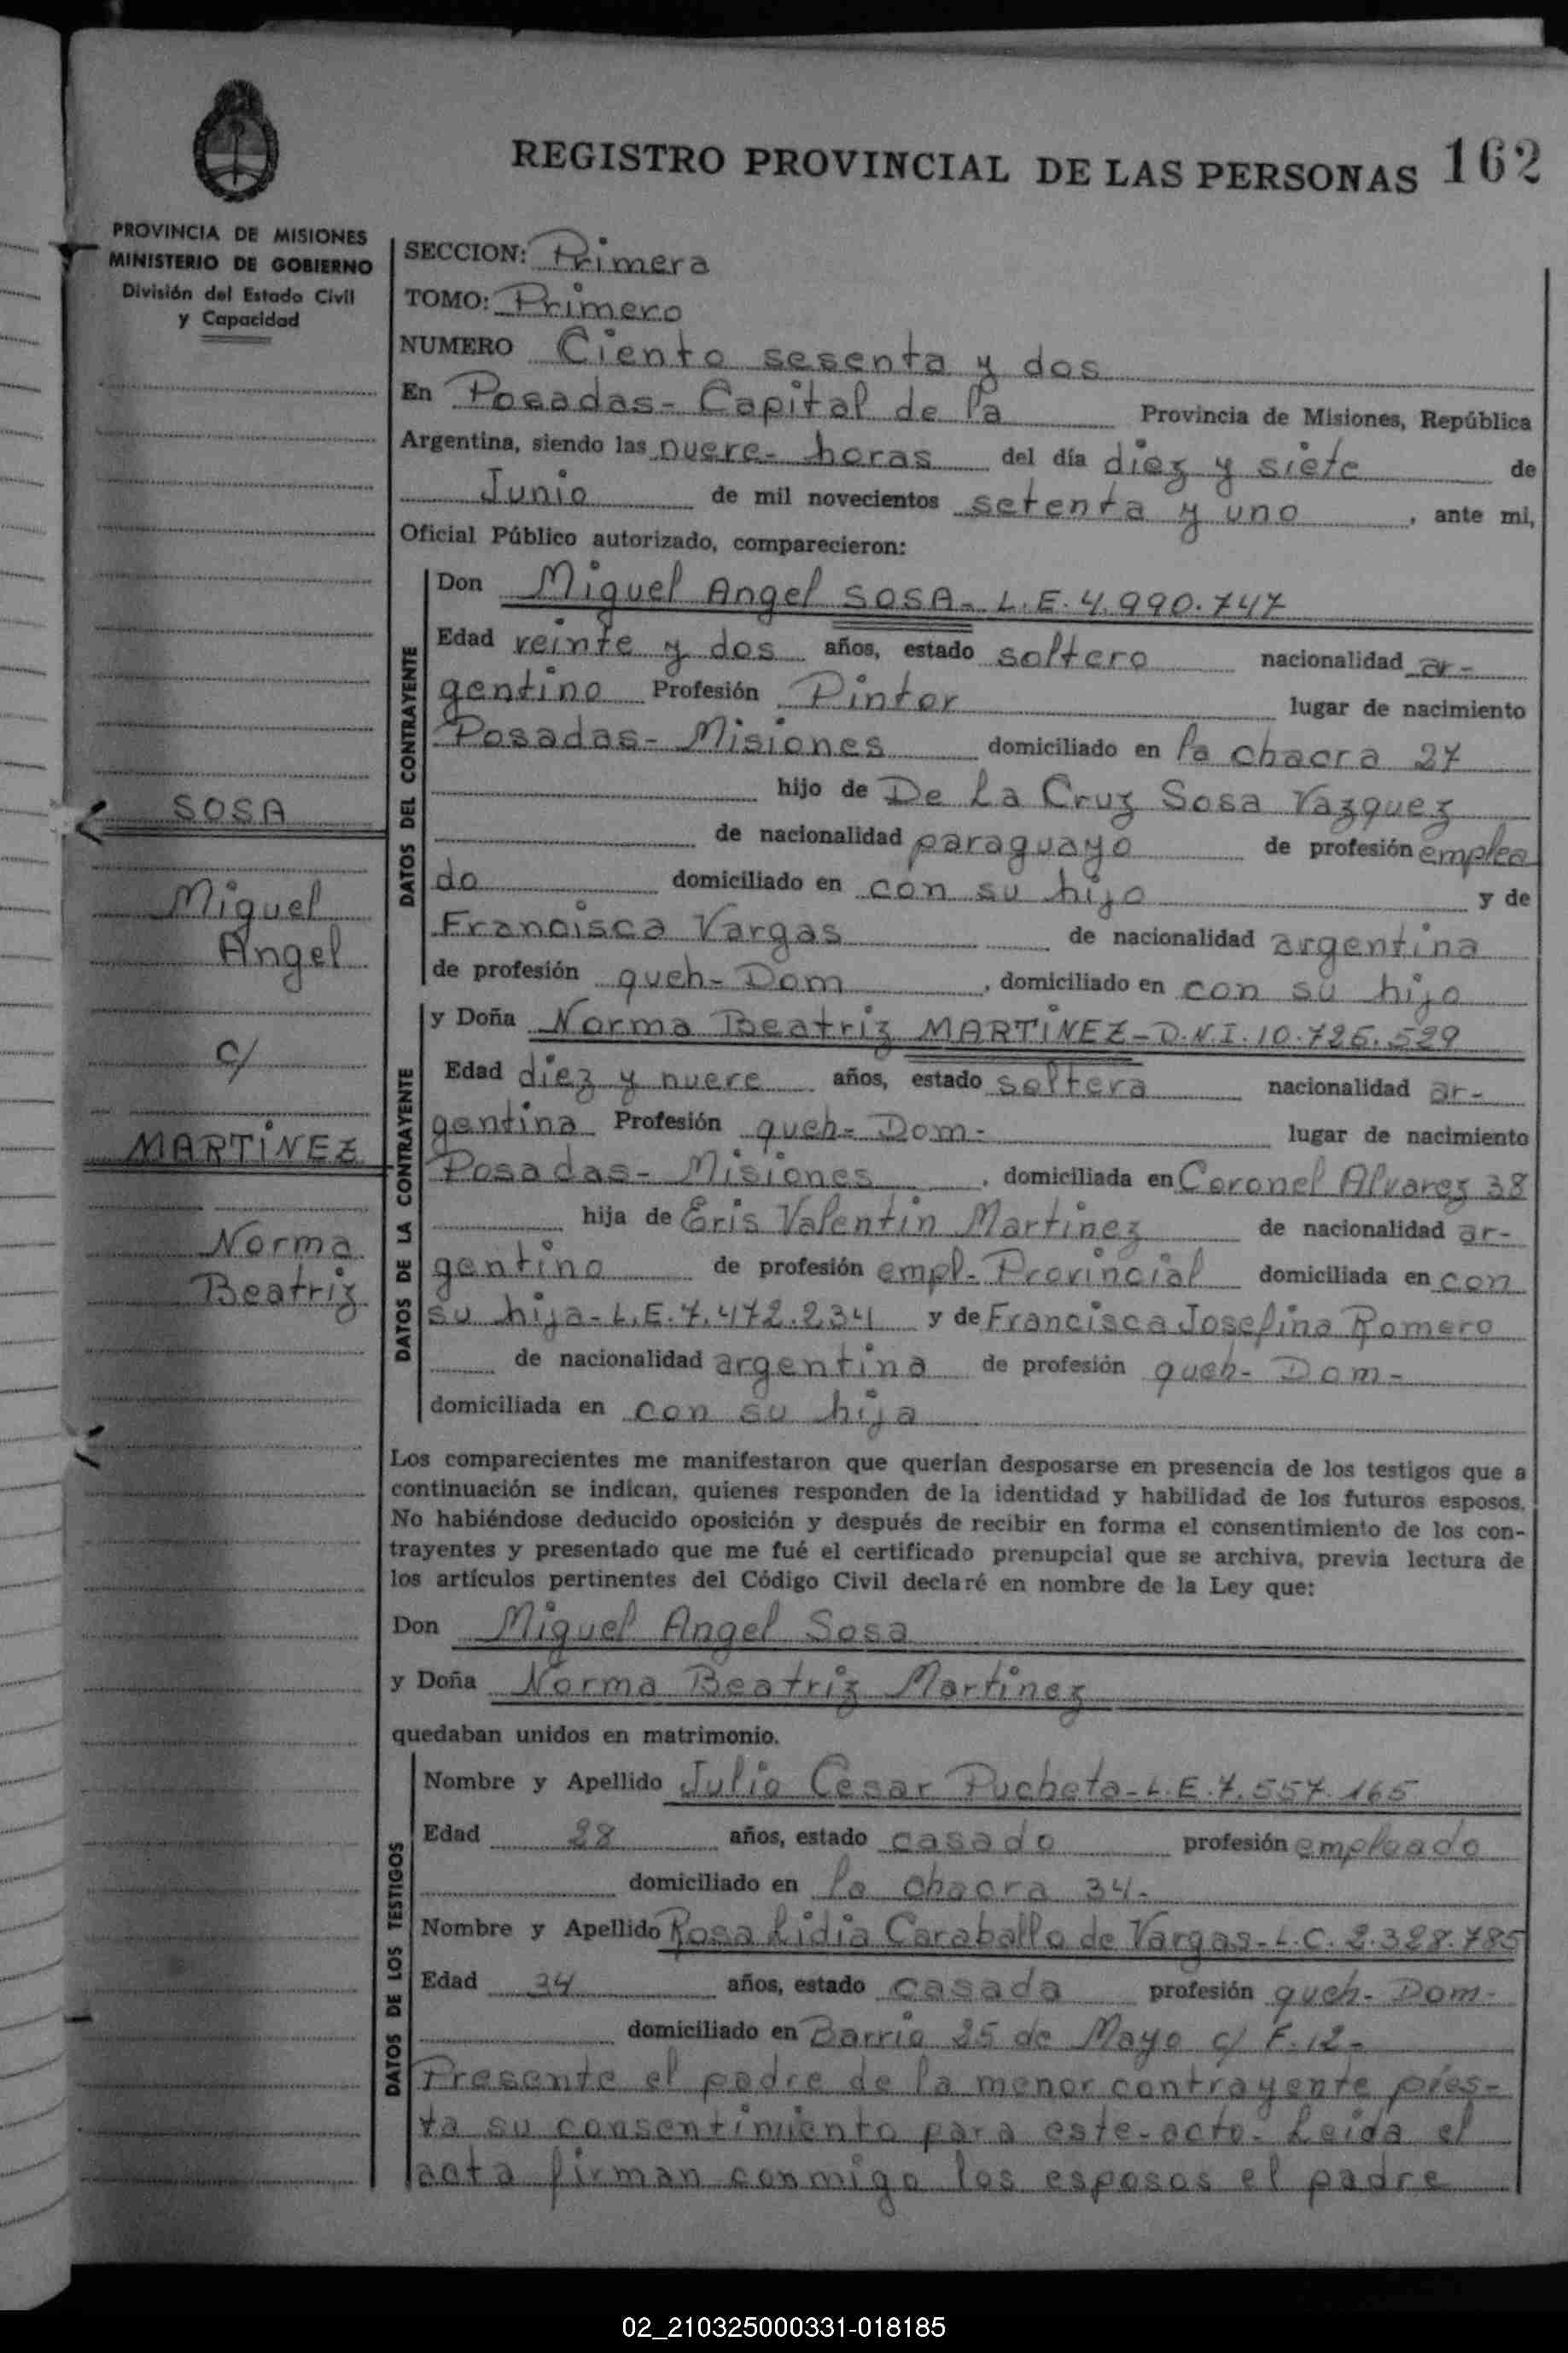 REGISTRO PROVINCIAL DE LAS PERSONAS 162
PROVINCIA DE MISIONES
MINISTERIO DE GOBIERNO
División del Estado Civil
y Capacidad
SOSA
Miguel
Angel
c/
MARTINEZ
Norma
Beatriz
SECCION: Primera
TOMO: Primero
NUMERO Ciento sesenta y dos
En Posadas - Capital de la Provincia de Misiones, República
Argentina, siendo las nueve - horas del día diez y siete de
Junio de mil novecientos setenta y uno, ante mi,
Oficial Público autorizado, comparecieron:
DATOS DEL CONTRAYENTE
Don Miguel Angel SOSA - L.E. 4.990.747
Edad veinte y dos años, estado soltero nacionalidad ar-
gentino Profesión Pintor lugar de nacimiento
Posadas - Misiones domiciliado en la chacra 27
hijo de De La Cruz Sosa Vazquez
de nacionalidad paraguayo de profesión emplea
do domiciliado en con su hijo y de
Francisca Vargas de nacionalidad argentina
de profesión queh - Dom, domiciliado en con su hijo
DATOS DE LA CONTRAYENTE
y Doña Norma Beatriz MARTINEZ - D.N.I. 10.726.529
Edad diez y nueve años, estado soltera nacionalidad ar-
gentina Profesión queh - Dom - lugar de nacimiento
Posadas - Misiones, domiciliada en Coronel Alvarez 38
hija de Eris Valentin Martinez de nacionalidad ar-
gentino de profesión empl - Provincial domiciliada en con
su hija - L.E. 7.472.234 y de Francisca Josefina Romero
de nacionalidad argentina de profesión queh - Dom -
domiciliada en con su hija
Los comparecientes me manifestaron que querían desposarse en presencia de los testigos que a
continuación se indican, quienes responden de la identidad y habilidad de los futuros esposos.
No habiéndose deducido oposición y después de recibir en forma el consentimiento de los con-
trayentes y presentado que me fué el certificado prenupcial que se archiva, previa lectura de
los artículos pertinentes del Código Civil declaré en nombre de la Ley que:
Don Miguel Angel Sosa
y Doña Norma Beatriz Martinez
quedaban unidos en matrimonio.
DATOS DE LOS TESTIGOS
Nombre y Apellido Julio Cesar Pucheta - L.E. 7.557.165
Edad 28 años, estado casado profesión empleado
domiciliado en la chacra 34 -
Nombre y Apellido Rosa Lidia Caraballo de Vargas - L.C. 2.328.785
Edad 34 años, estado casada profesión queh - Dom -
domiciliado en Barrio 25 de Mayo c/ F. 12 -
Presente el padre de la menor contrayente pres-
ta su consentimiento para este acto - Leida el
acta firman conmigo los esposos el padre
02_210325000331-018185